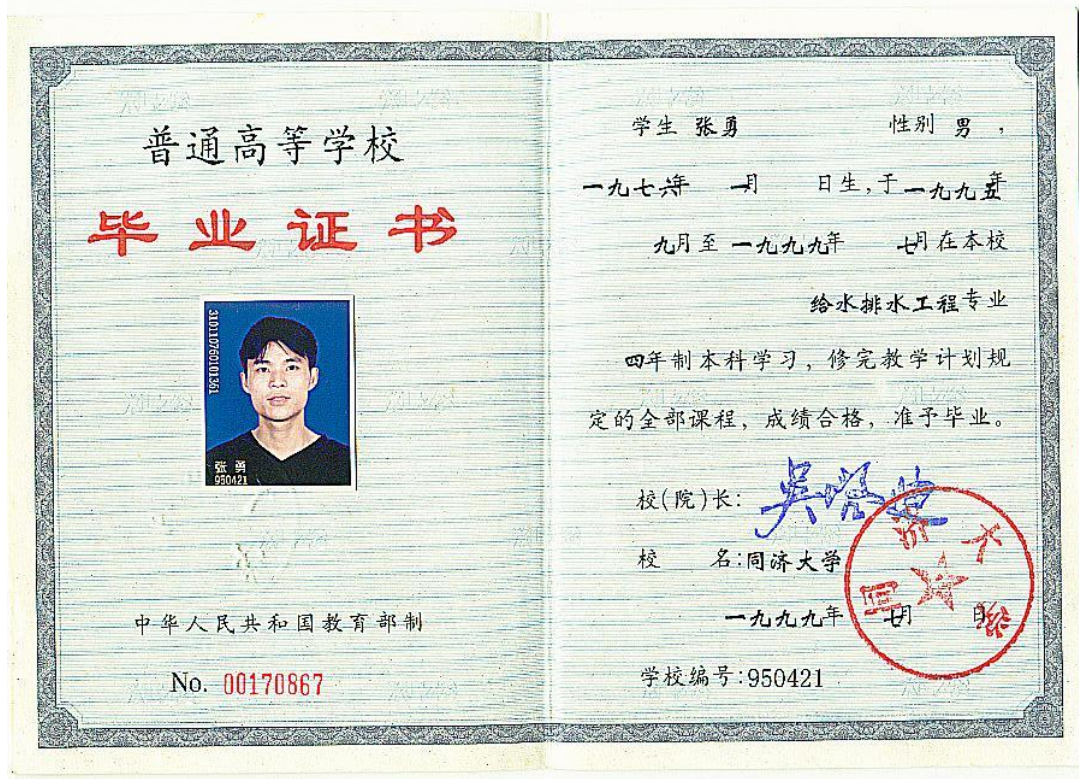 普通高等学校
毕业证书
310110760101361
张 勇
950421
中华人民共和国教育部制
No. 00170867
学生 张勇 性别 男，
一九七六年 一月 日生，于一九九五年
九月至一九九九年 七月在本校
给水排水工程专业
四年制本科学习，修完教学计划规
定的全部课程，成绩合格，准予毕业。
校(院)长：吴启迪
校 名：同济大学
一九九九年 七月 日
学校编号：950421
同济大学